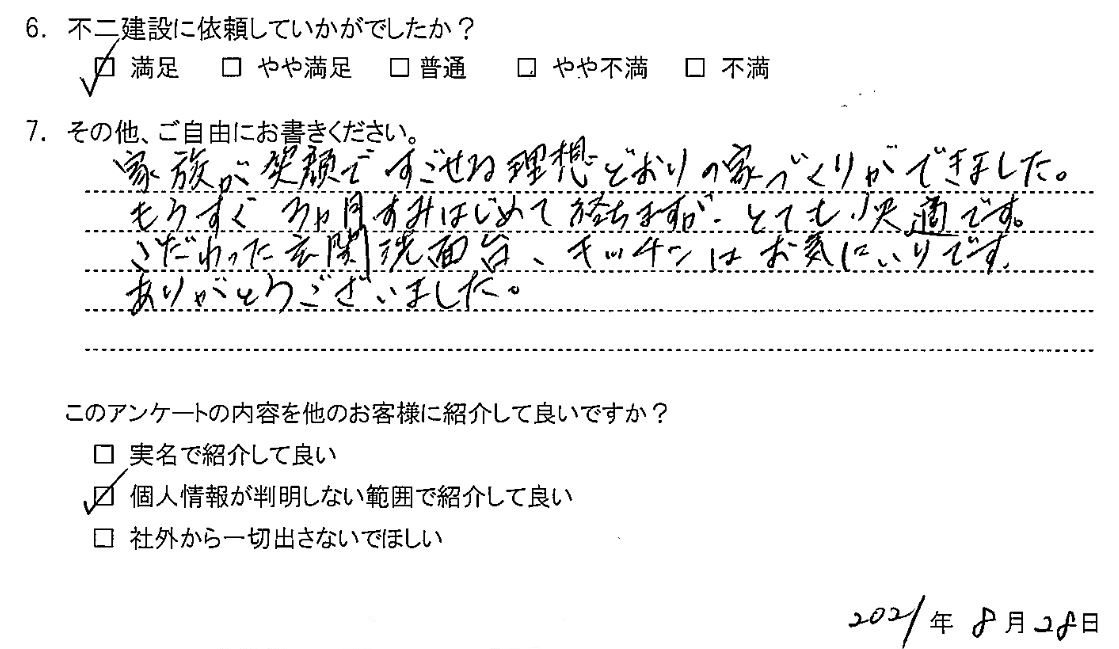 6. 不二建設に依頼していかがでしたか？
☑ 満足 □ やや満足 □ 普通 □ やや不満 □ 不満
7. その他、ご自由にお書きください。
家族が笑顔ですごせる理想どおりの家づくりができました。
もうすぐ3ヶ月すみはじめて経ちますが、とても快適です。
こだわった玄関洗面台、キッチンはお気にいりです。
ありがとうございました。
このアンケートの内容を他のお客様に紹介して良いですか？
□ 実名で紹介して良い
☑ 個人情報が判明しない範囲で紹介して良い
□ 社外から一切出さないでほしい
2021年 8月28日